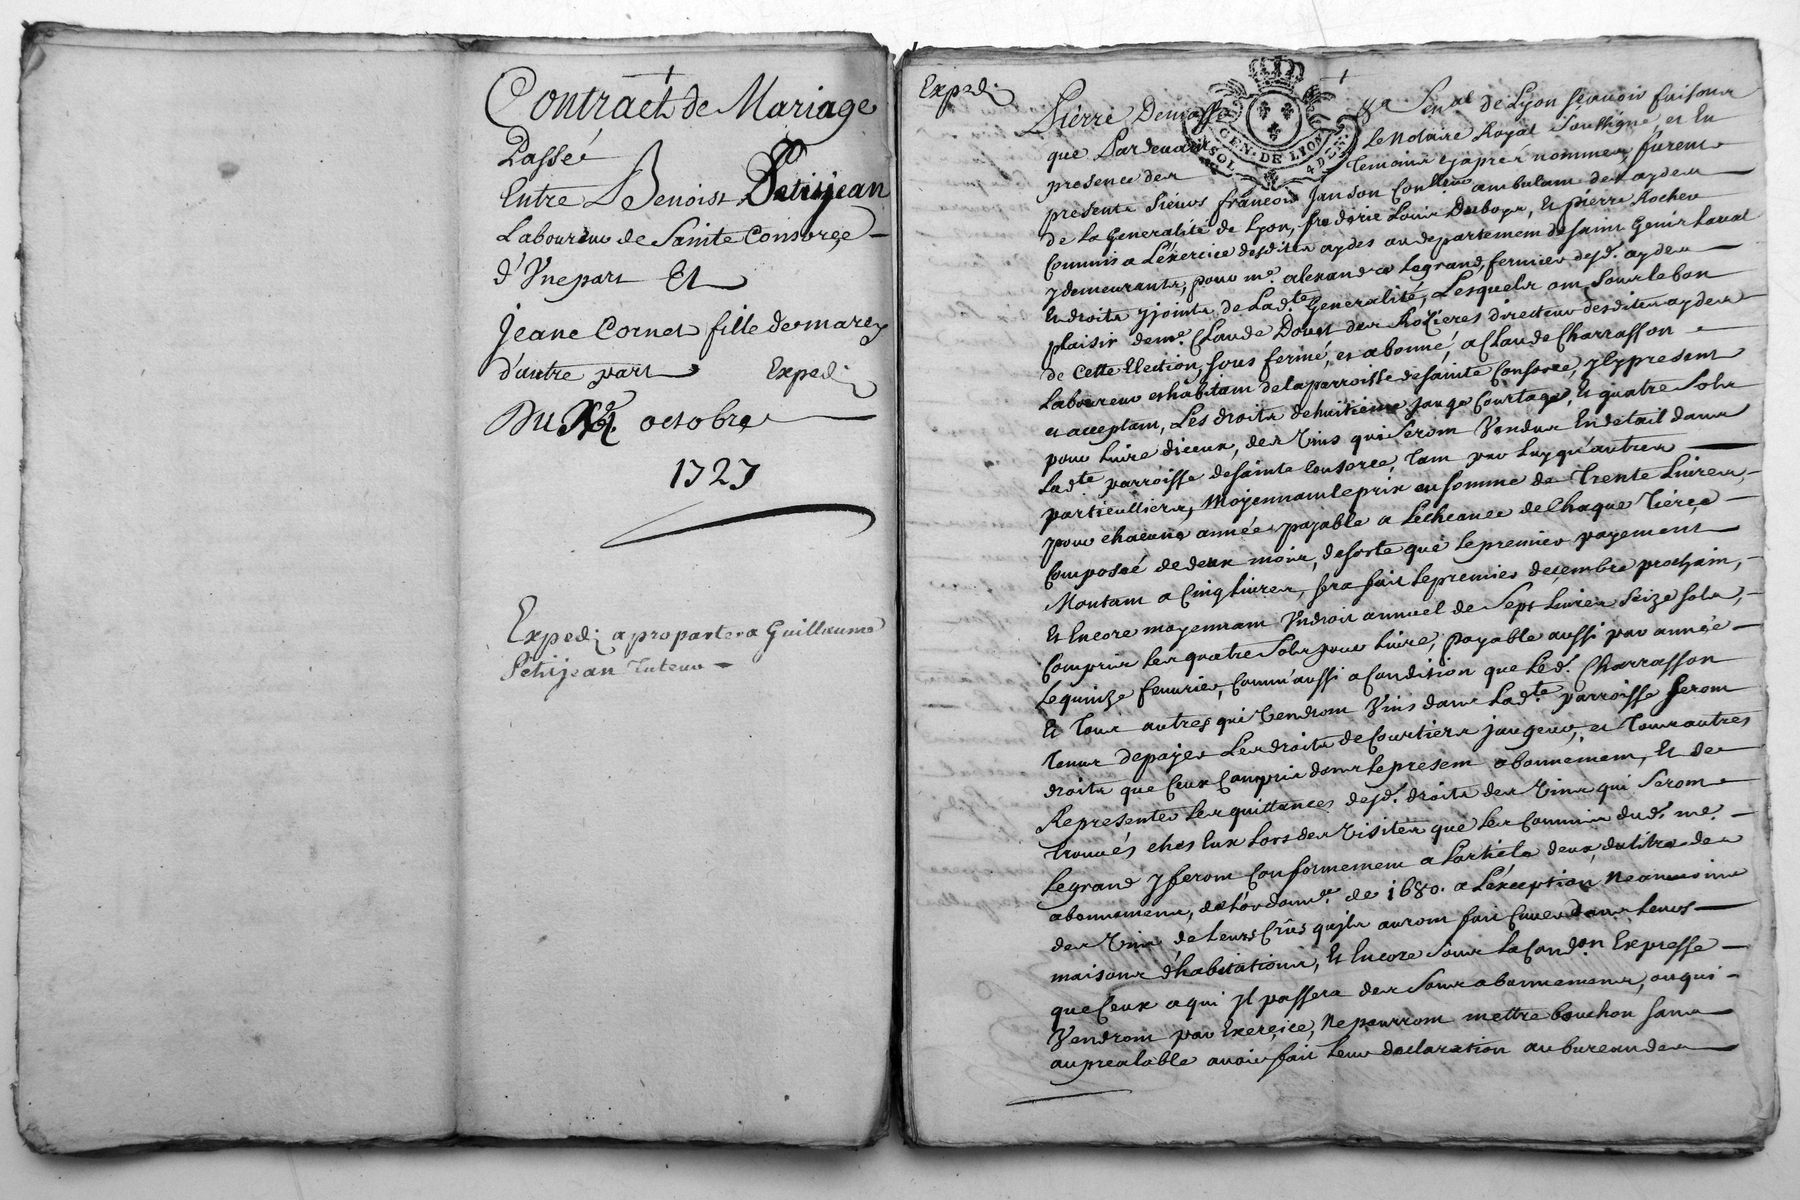 Contract de Mariage
Passé
Entre Benoist Petitjean
Laboureur de Sainte Consorçe
d'Une part Et
Jeane Cornet fille de marcy
d'autre part Exped:
Du octobre
1727
Exped: a propartera Guillaume
Petitjean tuteur
Exped:
Pierre Demasse Senal de Lyon sçavoir faisons
que Pardevant Le Notaire Royal Soussigné, et En
presence des Temoins cy aprés nommes, furent
presents Sieurs françois Janson Conlleur ambulant des aydes
de La Generalité de Lyon, frederic Louis Duboys, Et pierre Rocher
Commis a L'éxercice desdites aydes au departement de Saint Genis Laval
y demeurants, pour me. alexandre Legrand, fermier desd. aydes
Et droits y joints de Ladte. Generalité, Lesquels ont, Sous le bon
plaisir de me. Claude Douet des Rozieres directeur desdites aydes
de Cette Election, sous fermé, et abonné, a Claude Charrasson
Laboureur et habitant de la parroisse de Sainte Consorce, jcy present
et acceptant, Les droits de huitieme jauge Courtage, Et quatre Sols
pour Livre diceux, des Vins qui Seront Vendus En detail dans
Ladte parroisse de Sainte Consorce, Tant par Luy qu'autres
particulliers, Moyennant le prix ou somme de Trente Livres,
pour chacune année payable a Lecheance de Chaque Tierçe
Composeé de deux mois, de sorte que le premier payement
Montant a Cinq Livres, sera fait le premier decembre prochain,
Et Encore moyennant Un droit annuel de Sept Livres Seize sols,
Compris les quatre Sols pour Livre, Payable aussi par année
Le quinze fevrier, Comm'aussi a Condition que Le d. Charrasson
Et Tous autres qui Vendront Vins dans Ladte parroisse seront
Tenus de payer Les droits de Courtiers jaugeur, et Tous autres
droits que Ceux Compris dans le present abonnement, Et de
Representer Les quittances desd. droits des Vins qui Seront
Trouvés chés Eux Lors des Visites que Les Commis dud. me.
Legrand y feront Conformement a L'article deux du titre des
abonnements, de L'ordonn.ce de 1680. a L'exception Neanmoins
des Vins de Leurs Crûs qu'jls auront fait Cuver dans Leurs
maisons d'habitations, Et Encore Sous La Cond.on Expresse
que Ceux a qui jl passera des Sous abonnements, ou qui
Vendront par Exerçice, Ne pourront mettre bouchon sans
au prealable avoir fait Leur declaration au bureau des
GEN. DE LION